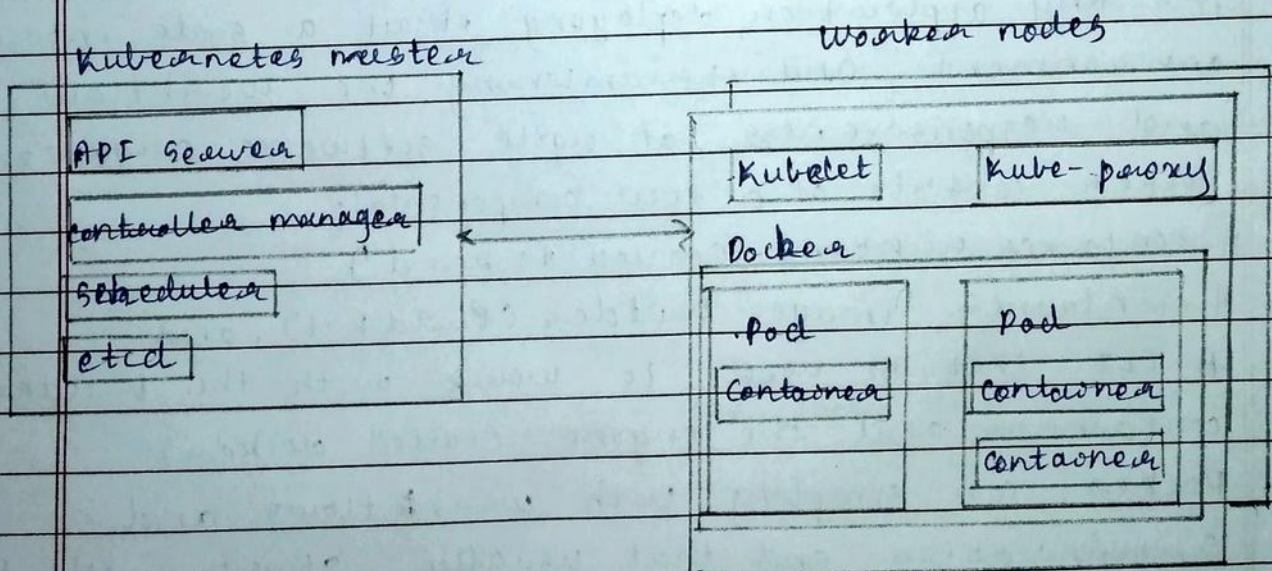 Kubernetes master
API server
controller manager
scheduler
etcd
Worker nodes
Kubelet
Kube-proxy
Docker
Pod
container
Pod
container
container